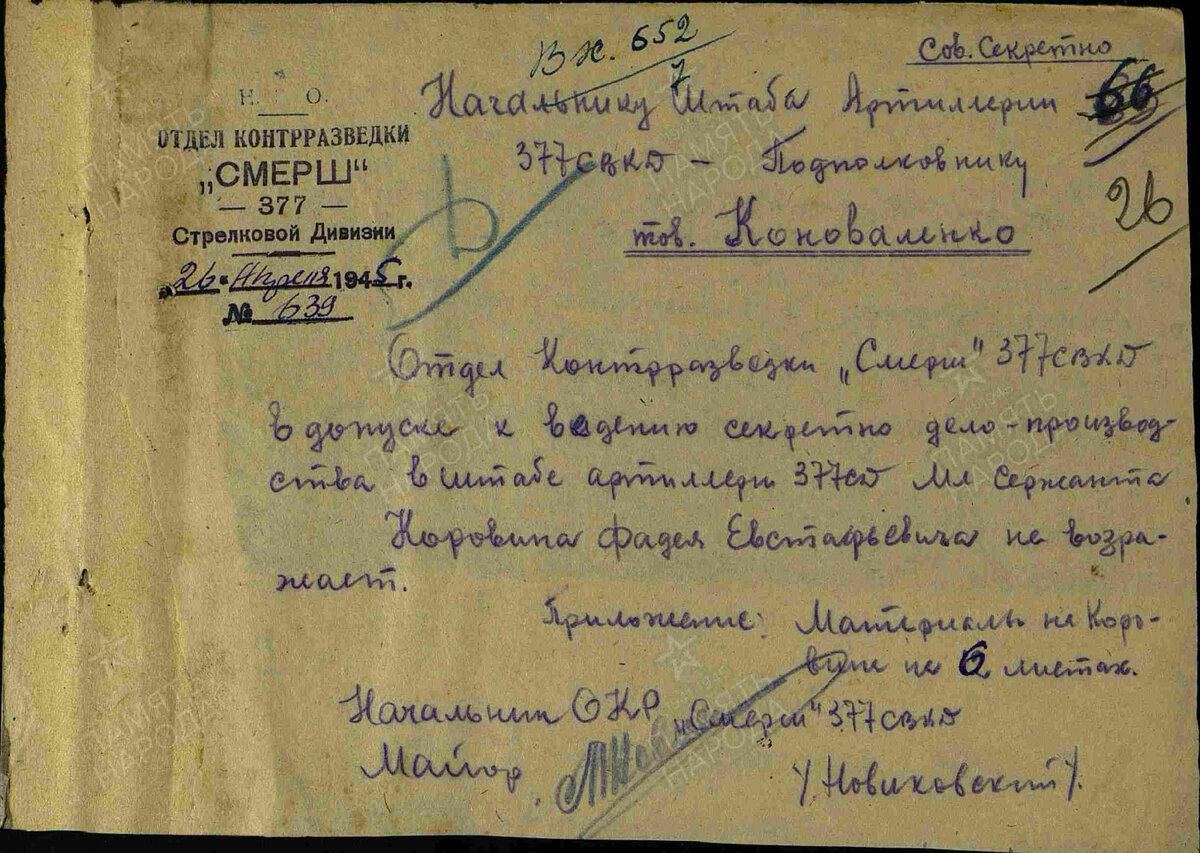 Вх. 652
7
Сов. Секретно
Н. О.
ОТДЕЛ КОНТРРАЗВЕДКИ
„СМЕРШ"
— 377 —
Стрелковой Дивизии
„26" Апреля 1945 г.
№ 639
Начальнику Штаба Артиллерии
66
377СВКД – Подполковнику
26
тов. Коноваленко
Отдел Контрразведки „Смерш" 377СВКД
в допуске к ведению секретно дело-производ-
ства в штабе артиллери 377сд Мл Сержанта
Коровина Фадея Евстафьевича не возра-
жает.
Приложение: Материалы на Коро-
вина на 6 листах.
Начальник ОКР „Смерш" 377СВКД
Майор
/Новиковский/.
ПАМЯТЬ НАРОДА